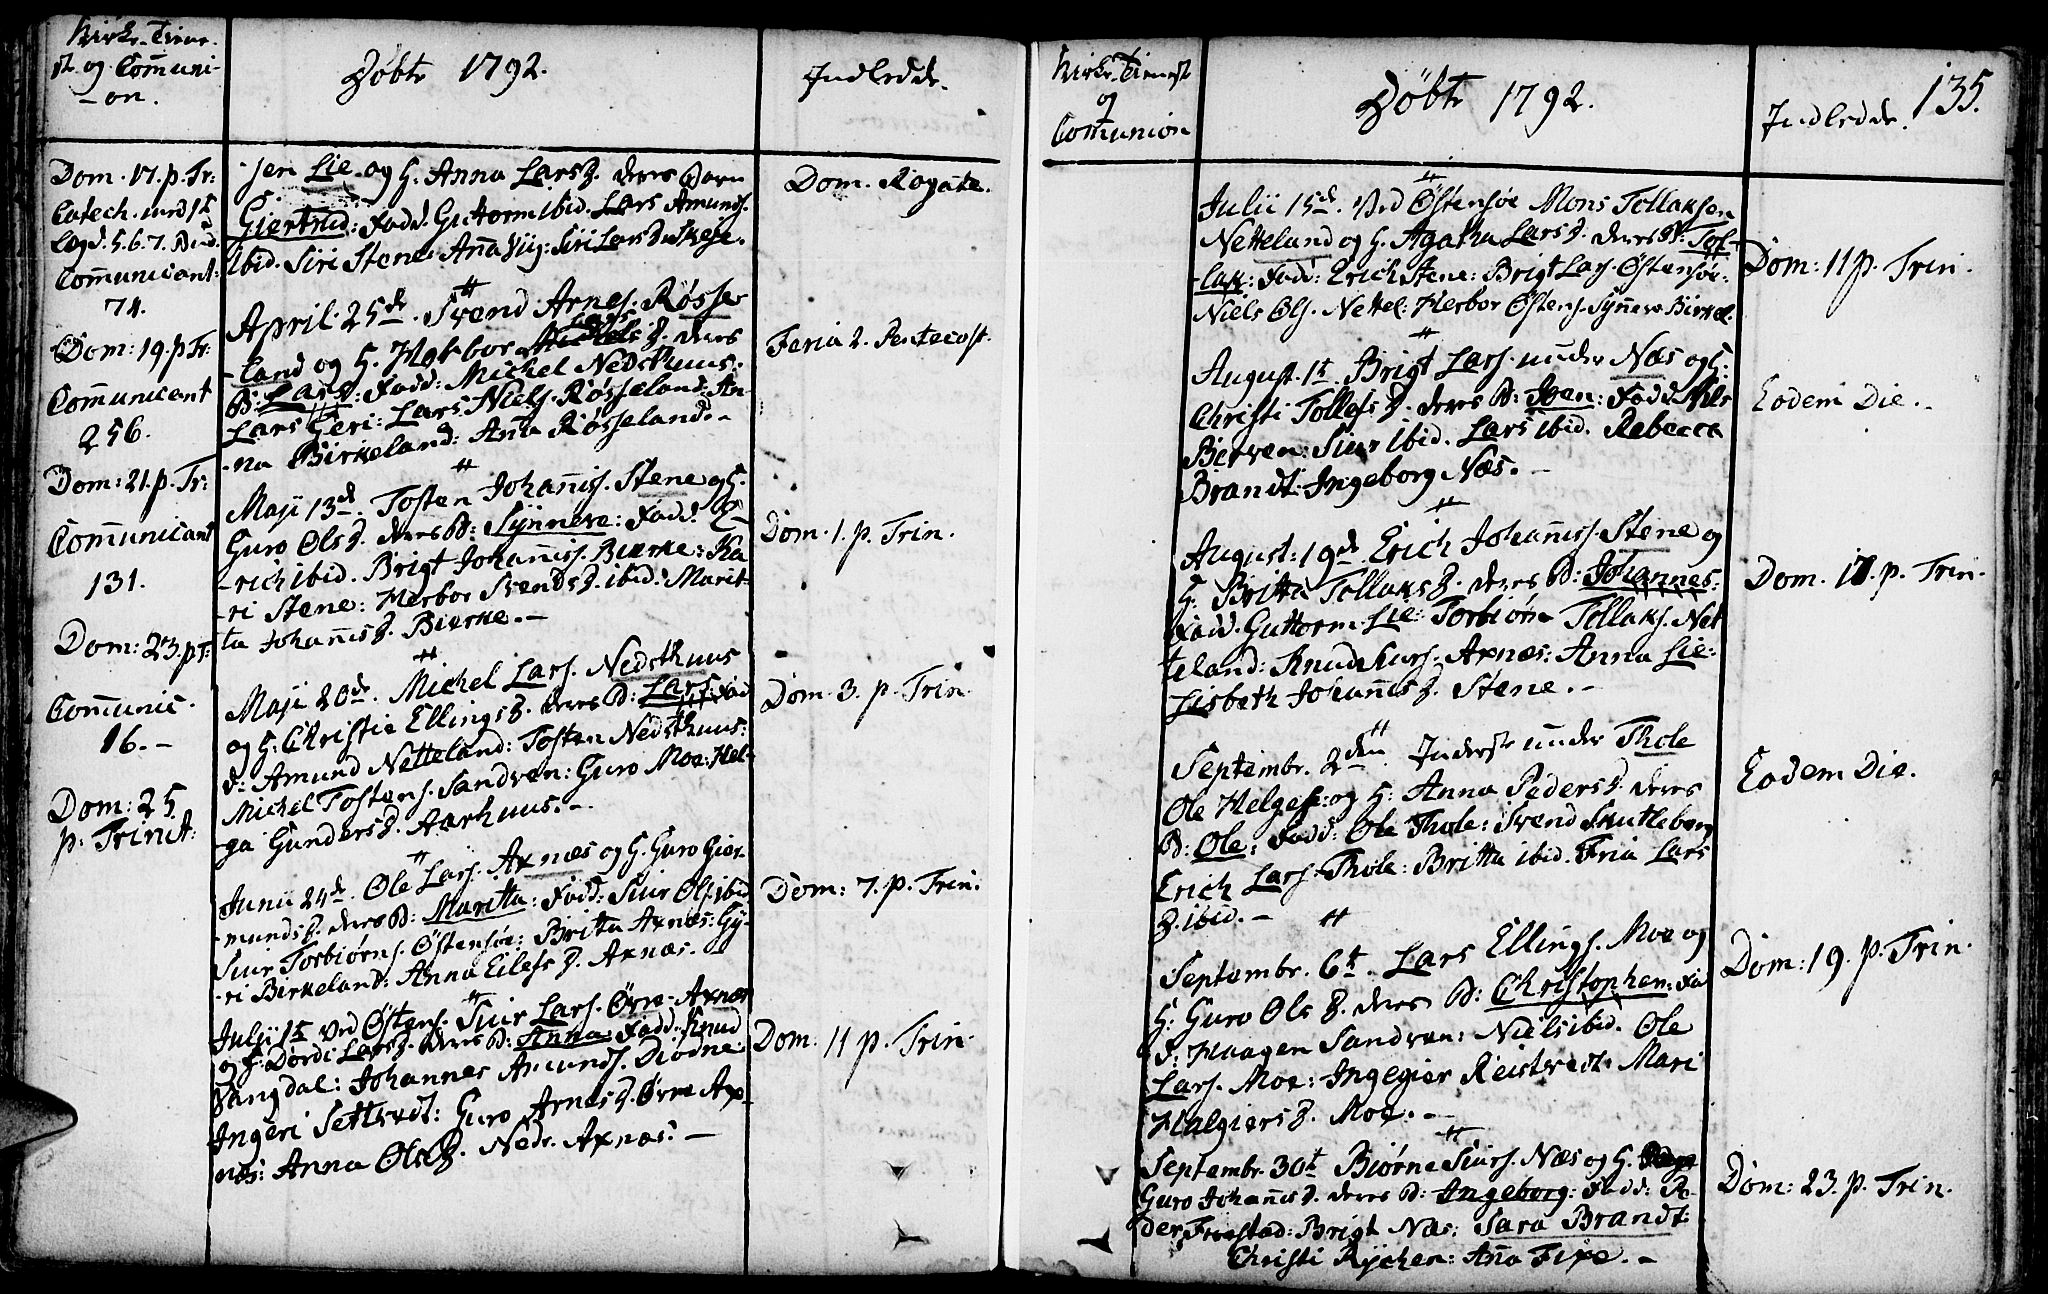 Kirke-Tiene-
st. og Com̄uni-
-on.
Dom. 17. p. Tr:
Catech. med 1st
Lagd. 5. 6. 7. Bud.
Com̄unicant:
74.
Dom: 19. p Tr:
Com̄unicant
256.
Dom: 21. p. Tr:
Com̄unicant
131.
Dom: 23. p T:
Com̄unic.
16. -
Dom: 25
p. Trinit:
Døbte 1792.
-sen Lie og H. Anna Larsd. deres Barn
Giertrud: Fadd. Guttorm ibid. Lars Amunds.
ibid. Siri Stene. Anna Siri Larsd. Skeje.
April. 25de. Svend Arnes. Røsse-
-land og H. Herbor Larsd. deres
B: Lars: Fadd: Michel Nedsthuus:
Lars Geri: Lars Niels. Røsseland: An-
-na Birkeland: Anna Røsseland. -
Maji 13de. Tosten Johan̄is. Stene og H.
Guro Olsd. deres B: Synneve: Fadd. E-
-rich ibid. Brigt Johan̄iss. Bierke: Ka-
-ri Stene: Herbor Svendsd. ibid: Marit-
ta Johan̄isd. Bierke. -
Maji 20de. Michel Lars. Nedsthuus
og H: Christie Ellingsd. deres B: Lars: Fad
d: Amund Netteland: Tosten Nedsthuus:
Michel Tostens. Sandven: Guro Moe: Hel-
ga Gundersd. Aarhuus. -
Junii 24de. Ole Lars. Axnæs og H. Guro Gier-
-mundsd. deres B: Maritta: Fadd: Siur Ols. ibid
Siur Torbiørns. Østensøe: Britta Axnæs: Gy-
-ri Birkeland: Anna Eilefsd. Axnæs.
Julii 1st ved Østens. Siur Lars. Øvre-Axnæs
og H. Dordi Larsd. deres B: Anna: Fadd: Knud
Vangdal: Johannes Amunds. Diødne:
Ingeri Settvedt: Guro Arnesd. Øvre Ax-
næs: Anna Olsd. Nedr. Axnæs. -
Indledde.
Dom. Rogate.
Feria 2. Pentecost.
Dom. 1. p. Trin.
Dom. 3. p. Trin.
Dom: 7. p. Trin:
Dom: 11 p. Trin.
Kirke-Tienest
og
Com̄union
Døbte 1792.
Indledde.
135.
Julii 15de. Ved Østensøe Mons Tollaksen
Netteland og H. Agatha Larsd. deres B: Tol-
-lak: Fadd: Erich Stene: Brigt Lars. Østensøe:
Niels Ols. Nettel: Herbor Østens. Synneve Birkel.
August. 1st. Brigt Lars. under Næs og H:
Christi Tollefsd. deres B: Joen: Fadd. Nils
Berven: Siur ibid. Lars ibid. Rebecca
Brandt: Ingeborg Næs. -
August: 19de Erich Johan̄iss. Stene og
H. Britta Tollaksd. deres B: Johannes:
Fadd. Guttorm Lie: Torbiørn Tollaks. Net
teland: Knud Siurs. Axnæs: Anna Lie:
Lisbeth Johan̄isd. Stene. -
Septembr. 2den. Inderste under Thole
Ole Helges: og H: Anna Pedersd. deres
B: Ole: Fadd: Ole Thole: Svend Skutleberg
Erich Lars. Thole: Britta ibid. Fria Lars
d. ibid. -
Septembr. 6t. Lars Ellings. Moe og
H: Guro Olsd. deres B: Christophen: Fad
d: Haagen Sandven: Niels ibid. Ole
Lars. Moe: Ingegier Reistvedt: Mari
Halgiersd. Moe. -
Septembr. 30t Biørne Siurs. Næs og H.
Guro Johan̄isd. deres B: Ingeborg: Fadd: Pe-
der Framstad: Brigt Næs: Sara Brandt:
Christi Rychen: An̄a Fixe. -
Dom: 11 p. Trin.
Eodem Die. -
Dom. 17. p. Trin.
Eodem Die.
Dom: 19. p. Trin.
Dom: 23. p. Trin.